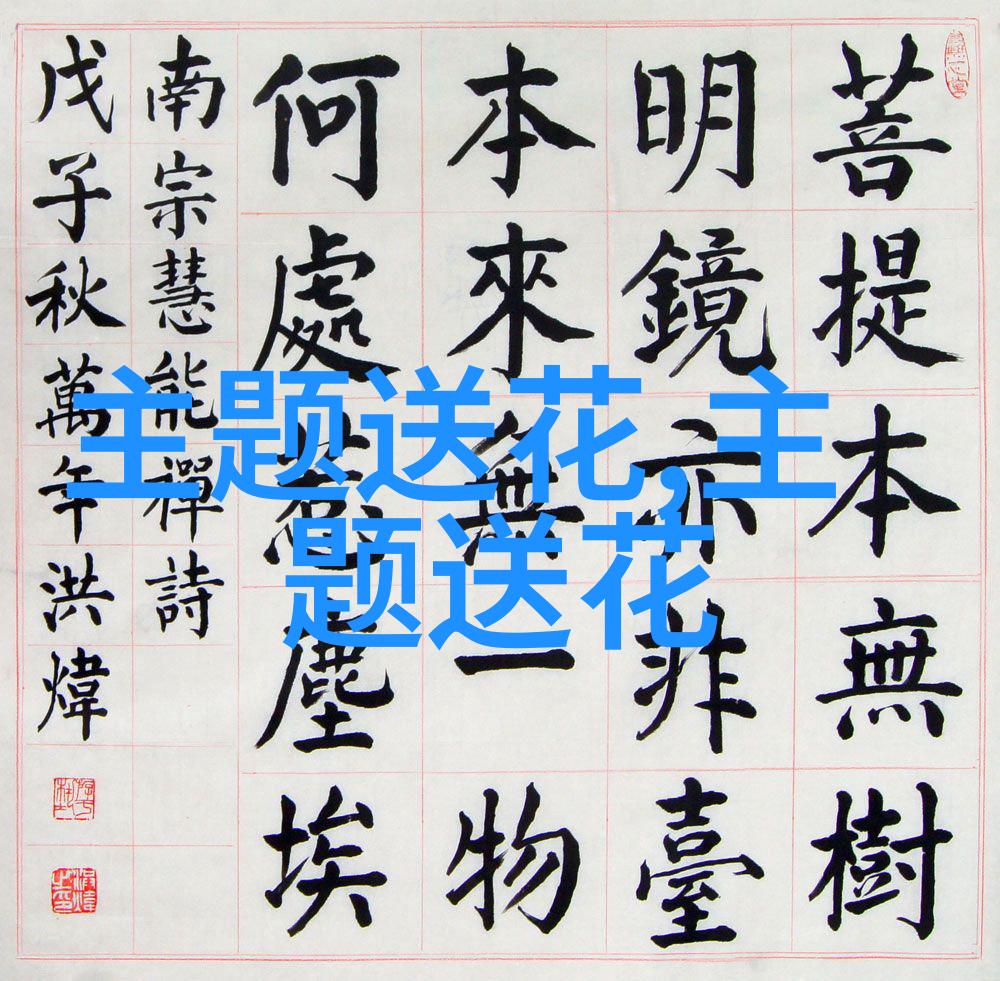 菩提本無樹
明鏡亦非臺
本來無一物
何處惹塵埃
南宗慧能禪詩
戊子秋萬年洪煒
主题送花,主
题送花